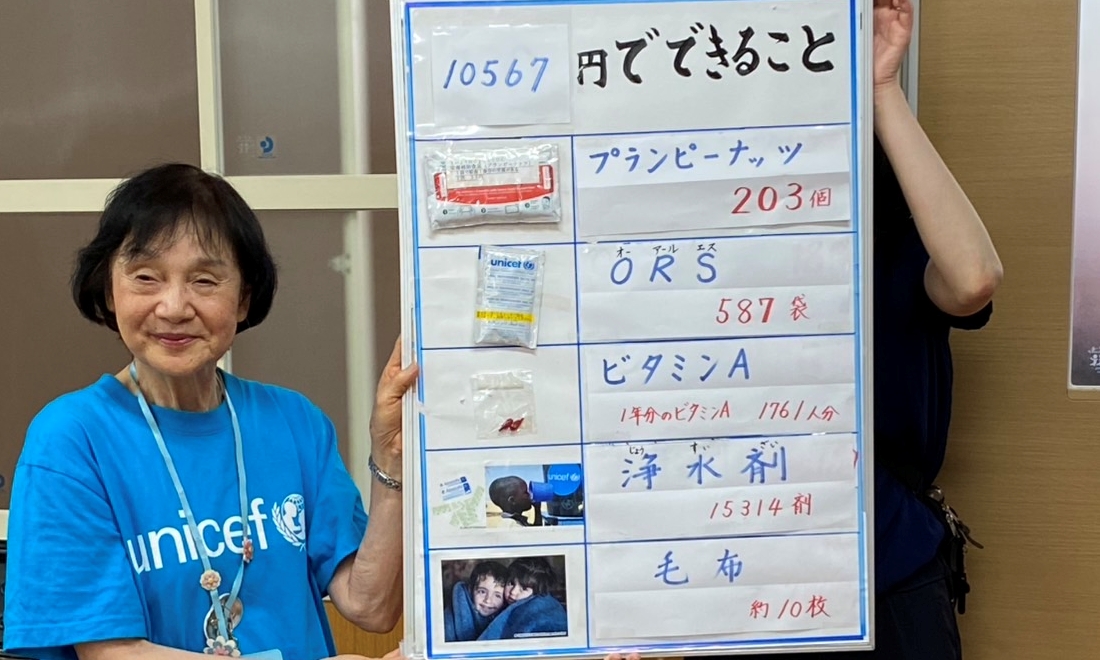 10567 円でできること
プランピーナッツ
203個
unicef
オー アール エス
ORS
587袋
ビタミンA
1年分のビタミンA 1761人分
じょう すい ざい
浄水剤
unicef
15314剤
毛布
約10枚
unicef